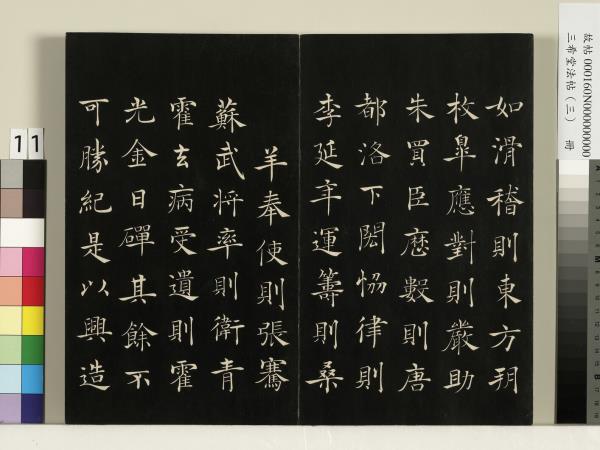 故帖 000160N000000000
三希堂法帖（三） 冊
如滑稽則東方朔
枚皐應對則嚴助
朱買臣厯數則唐
都洛下閎恊律則
李延年運籌則桑
羊奉使則張騫
蘇武將率則衛青
霍去病受遺則霍
光金日磾其餘不
可勝紀是以興造
11